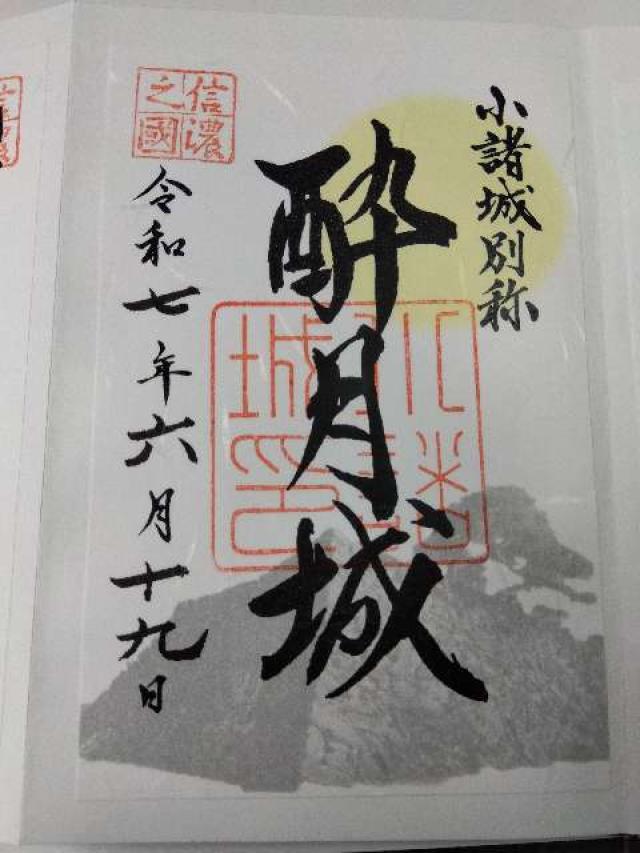 小諸城別称
酔月城
小諸
城印
信濃
之國
令和七年六月十九日